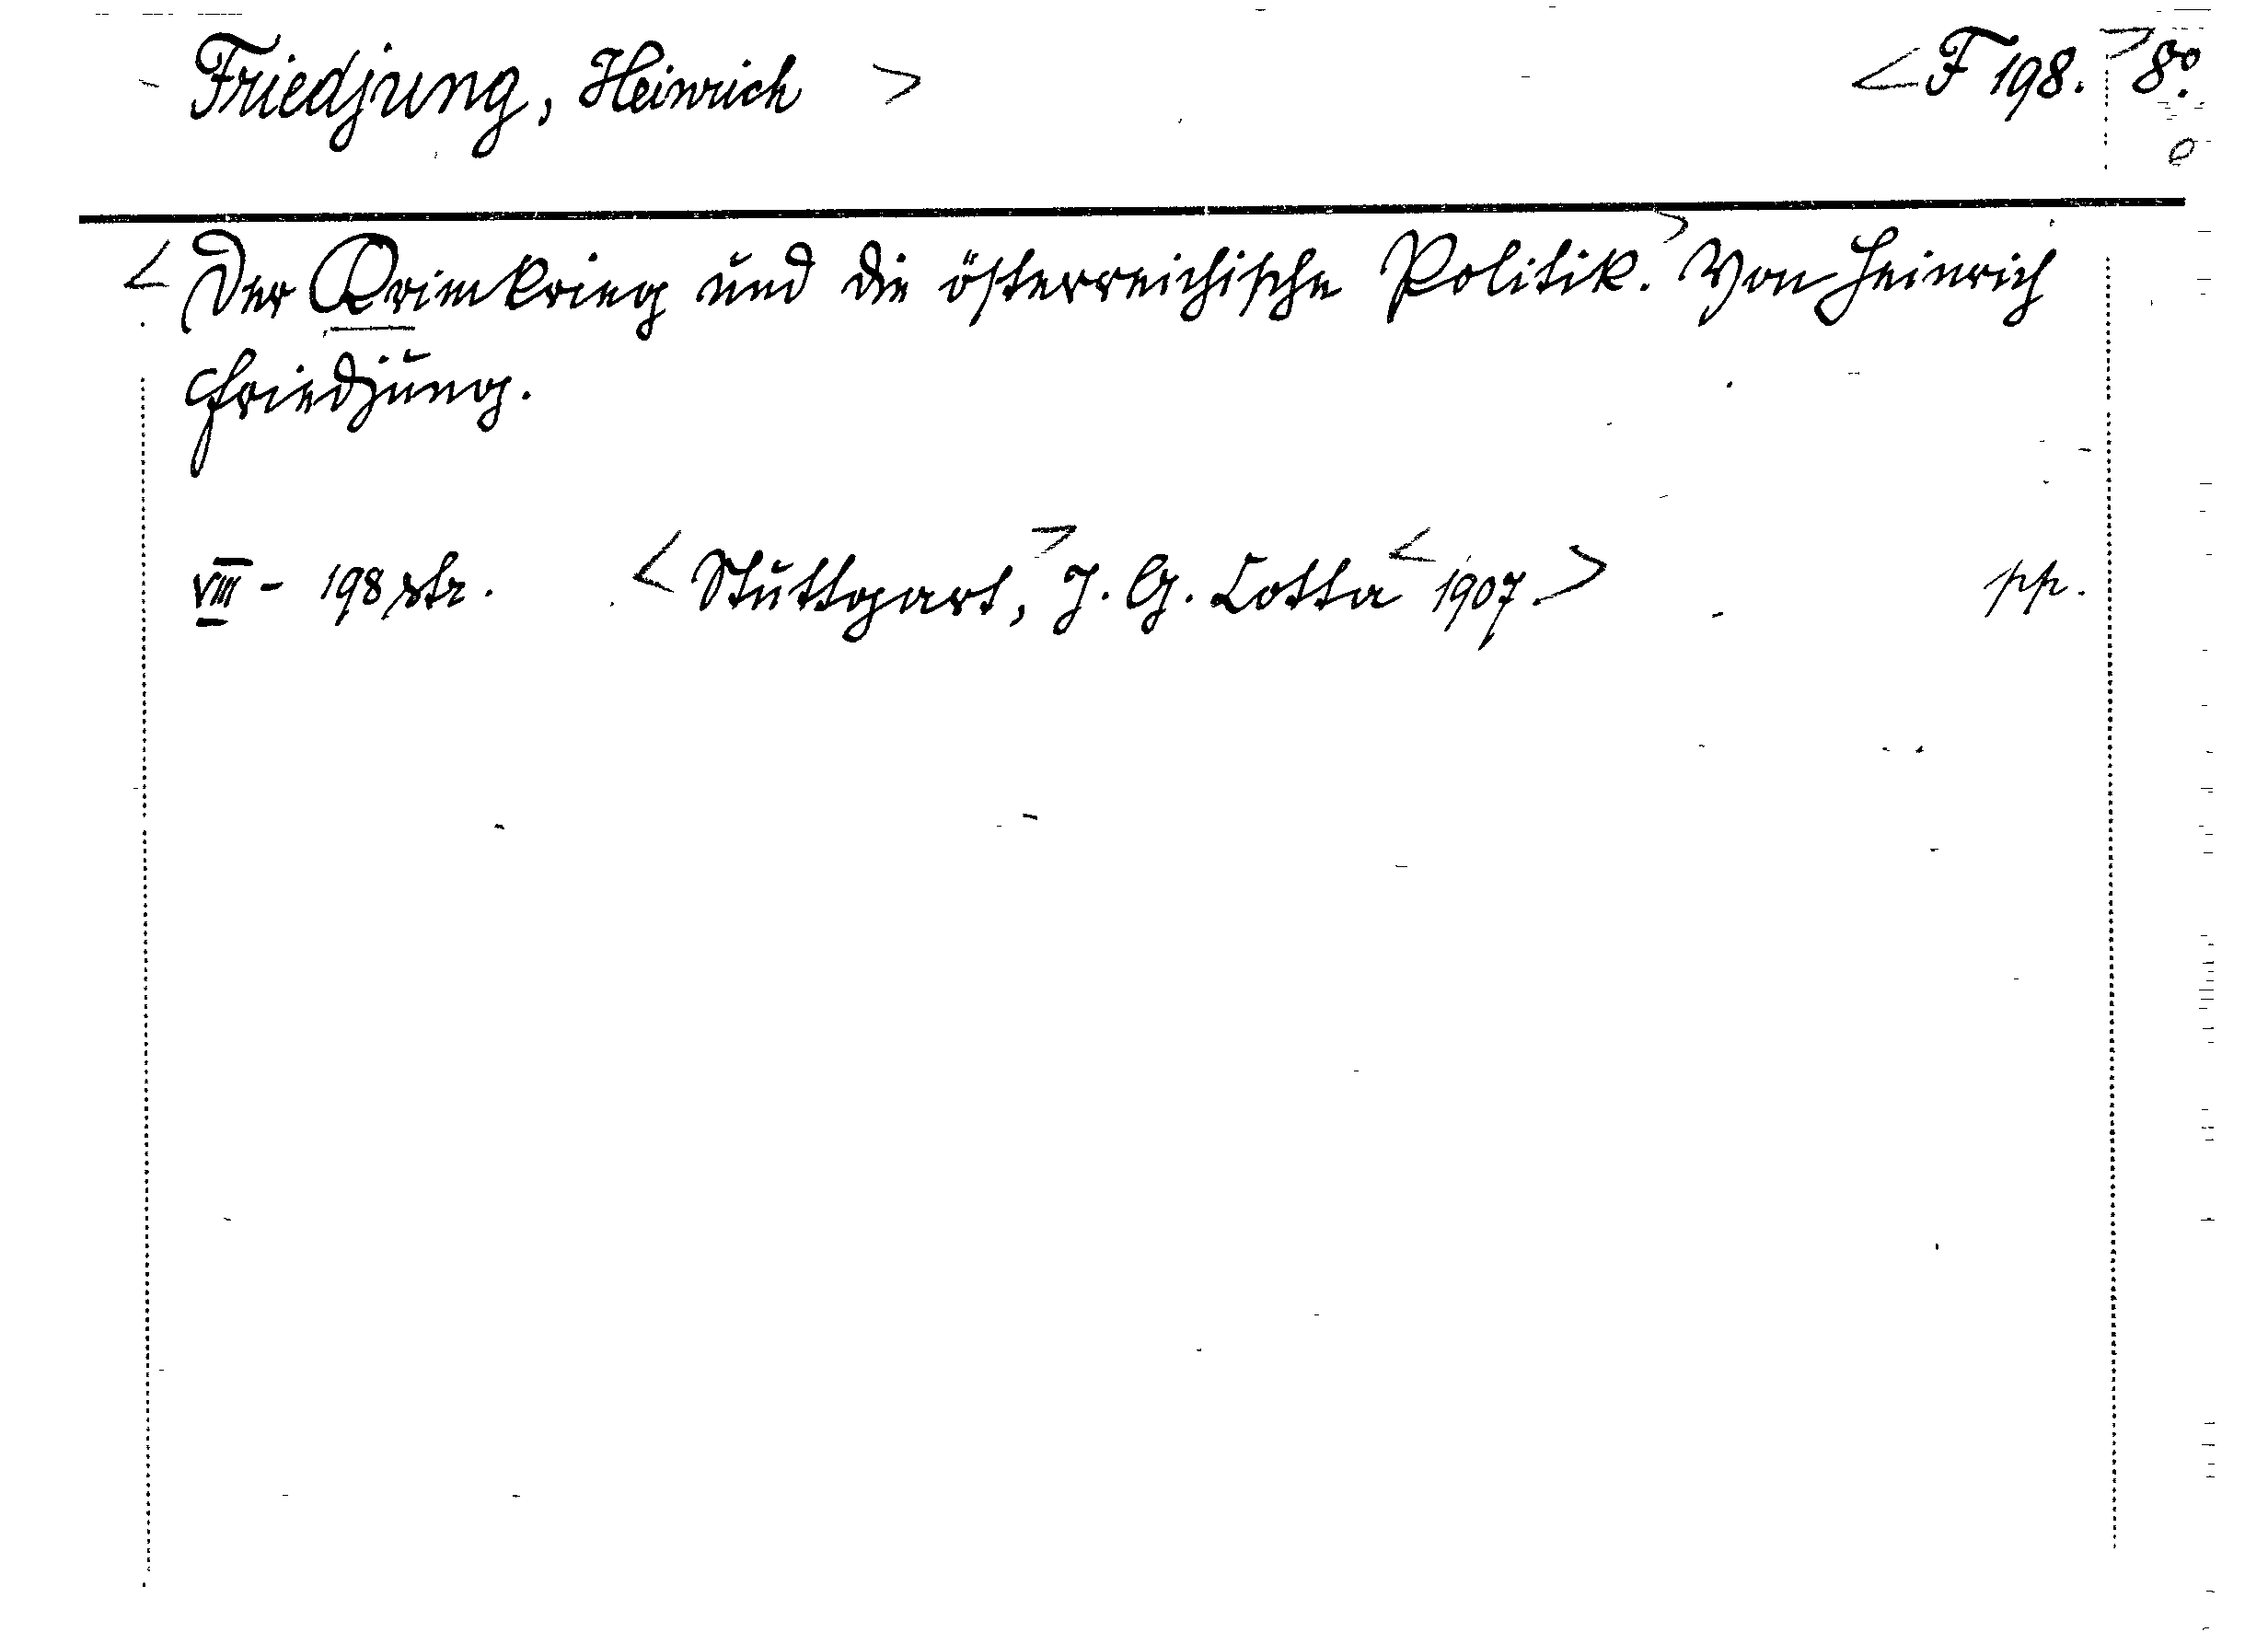 Friedjung, Heinrich > < F 198. > 8°.
< Der Krimkrieg und die österreichische Politik. > Von Heinrich
Friedjung.
VIII - 198 str. < Stuttgart, > J. G. Cotta < 1907. > pp.